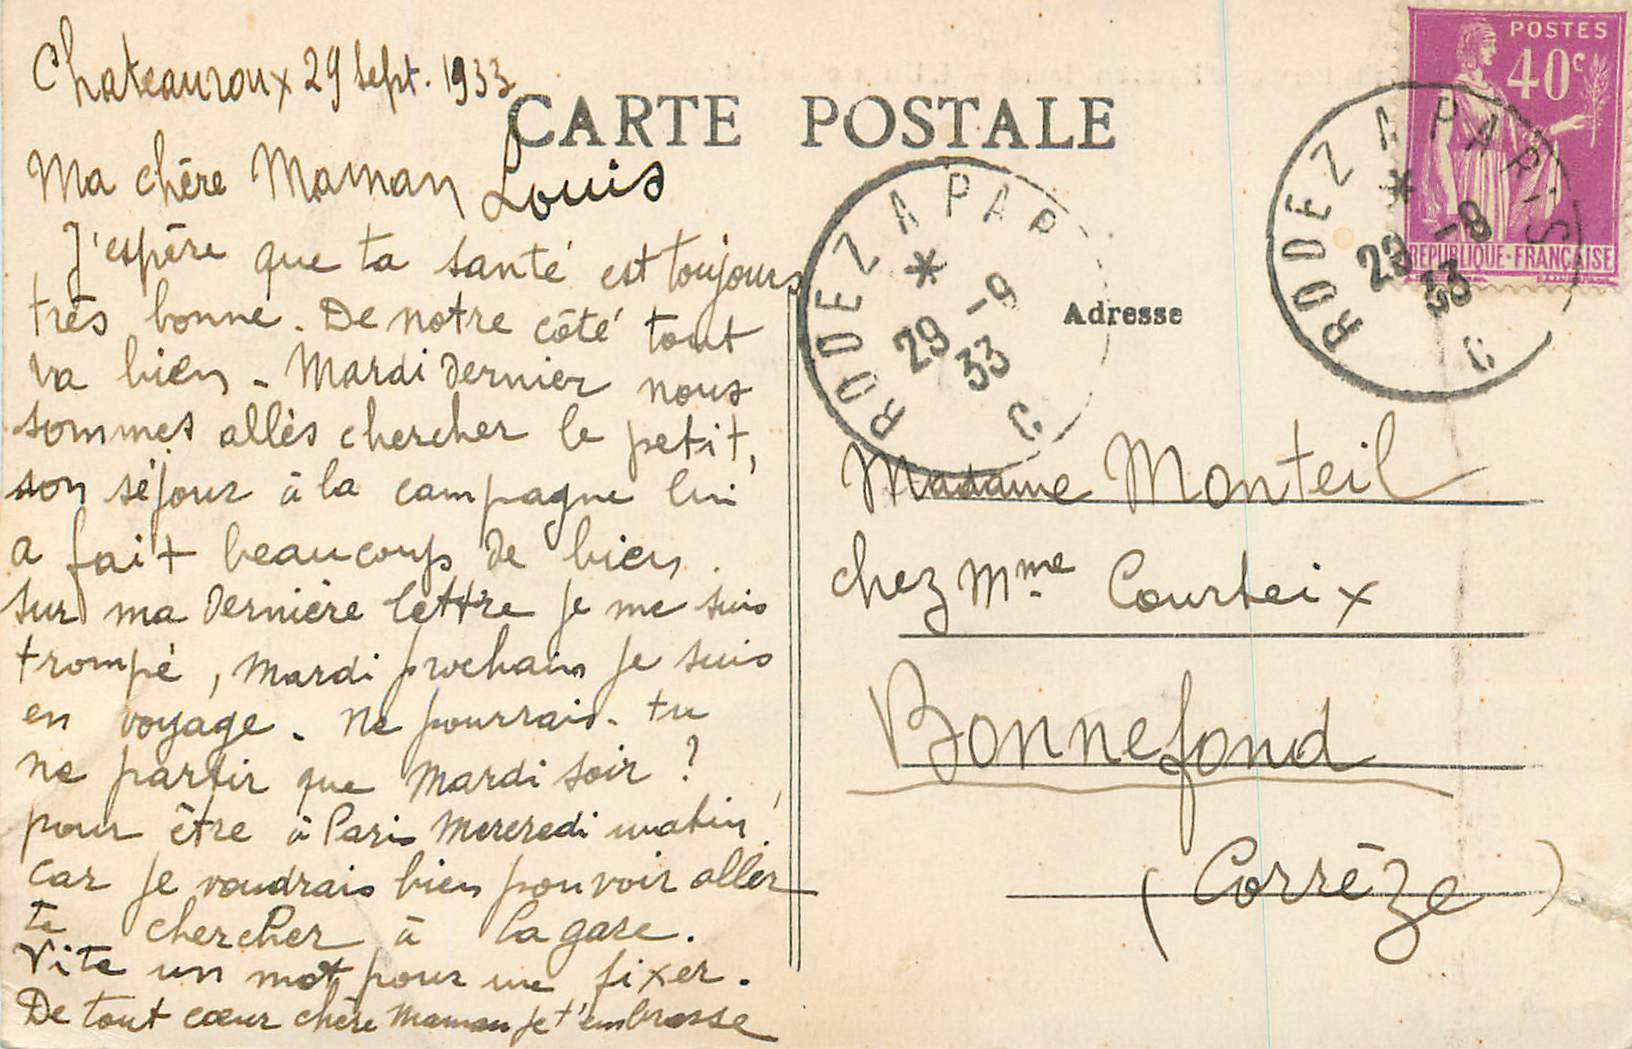 Chateauroux 29 sept. 1933
CARTE POSTALE
Ma chère Maman
Louis
J'espère que ta santé est toujours
très bonne. De notre côté tout
va bien. Mardi dernier nous
sommes allés chercher le petit,
son séjour à la campagne lui
a fait beaucoup de bien.
Sur ma dernière lettre je me suis
trompé, Mardi prochain je suis
en voyage. Ne pourrais-tu
ne partir que Mardi soir ?
pour être à Paris Mercredi matin,
car je voudrais bien pouvoir aller
te chercher à la gare.
Vite un mot pour me fixer.
De tout cœur chère Maman je t'embrasse
RODEZ A PAR
29 -9
33
Adresse
POSTES
40c
REPUBLIQUE-FRANÇAISE
RODEZ A PARIS
29 -9
33
Madame Monteil
chez Mme Courteix
Bonnefond
(Corrèze)